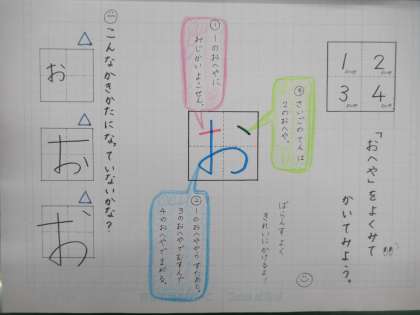 1 2
3 4
「おへや」をよくみて
かいてみよう。
ばらんすよく
きれいにかけるよ
③さいごのてんは
2のおへや。
①1のおへやに
みじかいよこせん。
お
②1のおへやからすたあと。
3のおへやでむすんで
4のおへやでまがる。
こんなかきかたになっていないかな？
お
お
お